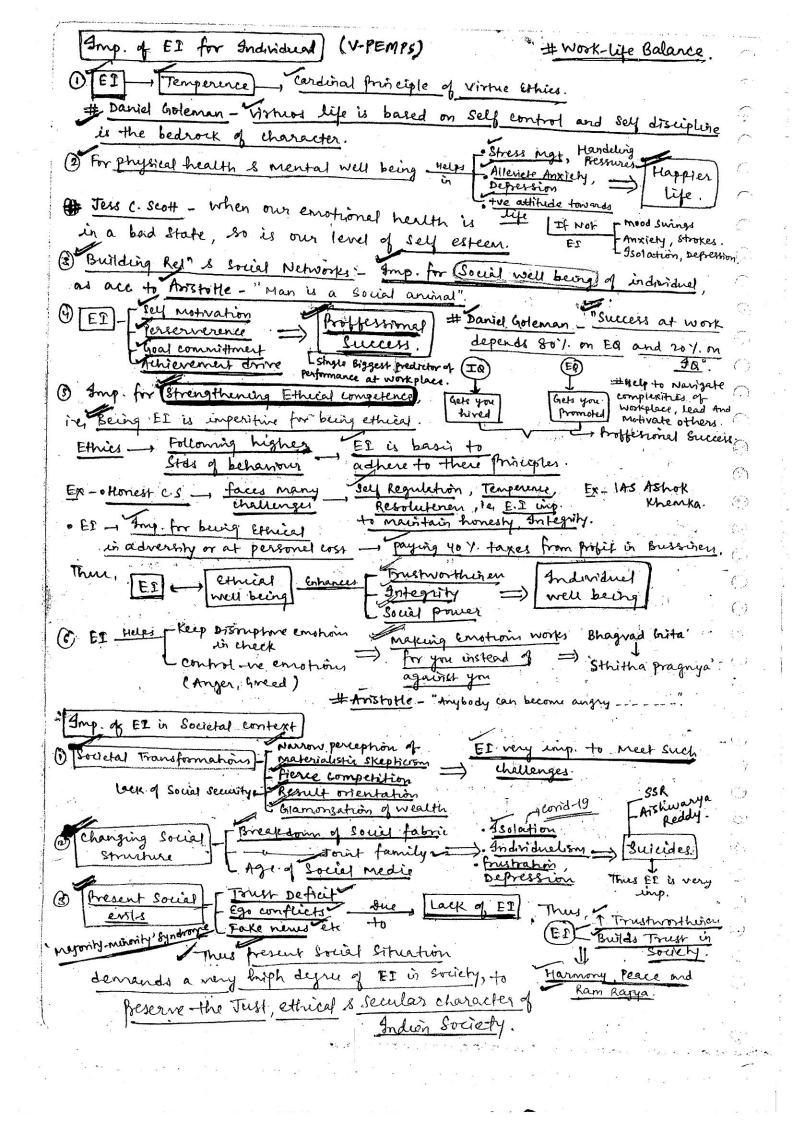 Imp. of EI for Individual (V-PEMPS)
# Work-life Balance.
① EI → Temperence → Cardinal Principle of Virtue Ethics.
# Daniel Goleman - Virtuos life is based on self control and self discipline
is the bedrock of character.
② For physical health & mental well being → Helps in
• Stress mgt, Handeling Pressures
• Alleviate Anxiety, Depression
• +ve attitude towards life
⇒ Happier Life.
If Not EI
Mood Swings
Anxiety, Strokes.
Isolation, Depression
# Jess C. Scott - when our emotional health is
in a bad state, so is our level of self esteem.
③ Building Relⁿ & Social Networks:- Imp. for Social well being of individual,
as acc to Aristotle - "Man is a social animal".
④ EI
Self Motivation
Perserverence
Goal committment
Achievement drive
⇒ Proffessional Success.
Single Biggest predictor of
performance at workplace.
# Daniel Goleman - "Success at work
depends 80% on EQ and 20% on
IQ".
IQ
EQ
Gets you hired
Gets you Promoted
# Help to Navigate
complexities of
workplace, lead And
Motivate others.
→ Proffesional Success
⑤ Imp. for Strengthening Ethical competence,
i.e, Being EI is imperitive for being ethical.
Ethics → Following higher Stds of behaviour → EI is basis to adhere to these Principles.
Ex - • Honest C.S → faces many challenges → Self Regulation, Temperence,
Resolutenen, i.e. E.I imp.
to maintain honesty, Integrity.
Ex - IAS Ashok Khemka.
• EI → Imp. for being Ethical
in adversity or at personal cost → paying 40% taxes from profit in Bussiness.
Thus, EI ↔ Ethical well being Enhances
Trustworthinen
Integrity
Social power
⇒ Individual well being
⑥ EI Helps
Keep Disruptive emotions in check
Control -ve emotions
(Anger, Greed)
⇒ Making Emotions works
for you instead of
against you
⇒ Bhagvad Gita'
↓
'Sthitha Pragnya'
# Aristotle - "Anybody can become angry -------"
Imp. of EI in Societal context
① Societal Transformations
Lack of Social Security
Narrow perception of
Materialistic Skepticism
Fierce Competition
Result orientation
Glamorisation of wealth
⇒ EI very imp. to meet such
challenges.
② Changing Social Structure
Breakdown of Social fabric
—〃— Joint family
Age of Social Media
⇒ • Isolation
Covid-19
• Individualism
• frustration, Depression
⇒ Suicides.
SSR
Aishwarya Reddy.
↓
Thus EI is very imp.
③ Present Social evils
'Majority-minority' Syndrome
Trust Deficit
Ego conflicts
Fake news etc
Due to → Lack of EI
Thus,
EI
↑ Trustworthinen
Builds Trust in Society.
⇓
Harmony, Peace and
Ram Rajya.
Thus present Social Situation
demands a very high degree of EI in society, to
Preserve the Just, ethical & secular character of
Indian Society.